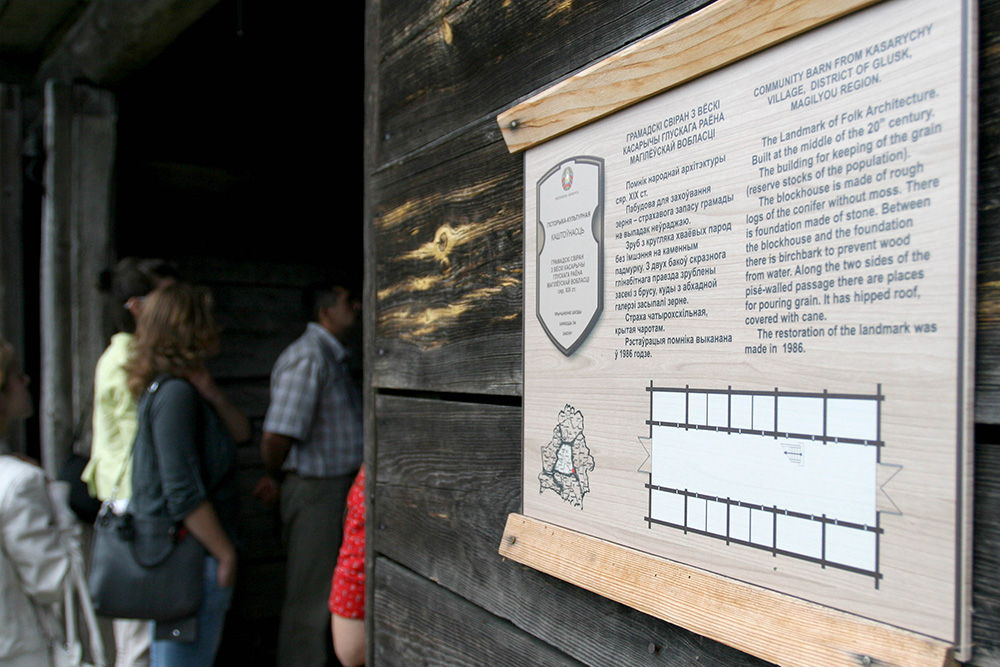 ГРАМАДСКІ СВІРАН З ВЁСКІ
КАСАРЫЧЫ ГЛУСКАГА РАЁНА
МАГІЛЁЎСКАЙ ВОБЛАСЦІ
Помнік народнай архітэктуры
сяр. XIX ст.
Пабудова для захоўвання
зерня – страхавога запасу грамады
на выпадак неўраджаю.
Зруб з кругляка хваёвых парод
без імшэння на каменным
падмурку. З двух бакоў скразнога
глінабітнага праезда зрублены
засекі з брусу, куды з абхадной
галерэі засыпалі зерне.
Страха чатырохсхільная,
крытая чаротам.
Рэстаўрацыя помніка выканана
ў 1986 годзе.
COMMUNITY BARN FROM KASARYCHY
VILLAGE, DISTRICT OF GLUSK,
MAGILYOU REGION.
The Landmark of Folk Architecture.
Built at the middle of the 20th century.
The building for keeping of the grain
(reserve stocks of the population).
The blockhouse is made of rough
logs of the conifer without moss. There
is foundation made of stone. Between
the blockhouse and the foundation
there is birchbark to prevent wood
from water. Along the two sides of the
pisé-walled passage there are places
for pouring grain. It has hipped roof,
covered with cane.
The restoration of the landmark was
made in 1986.
ГІСТОРЫКА-КУЛЬТУРНАЯ
КАШТОЎНАСЦЬ
ГРАМАДСКІ СВІРАН
З ВЁСКІ КАСАРЫЧЫ
ГЛУСКАГА РАЁНА
МАГІЛЁЎСКАЙ ВОБЛАСЦІ
сяр. XIX ст.